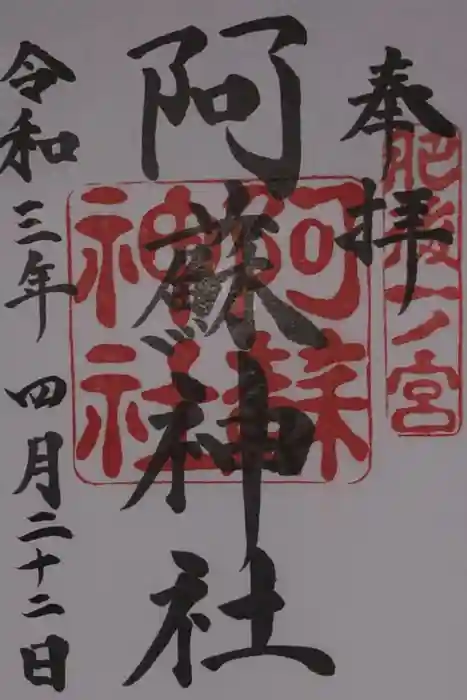 奉拝
肥後一ノ宮
阿蘇神社
阿蘇神社
令和三年四月二十二日